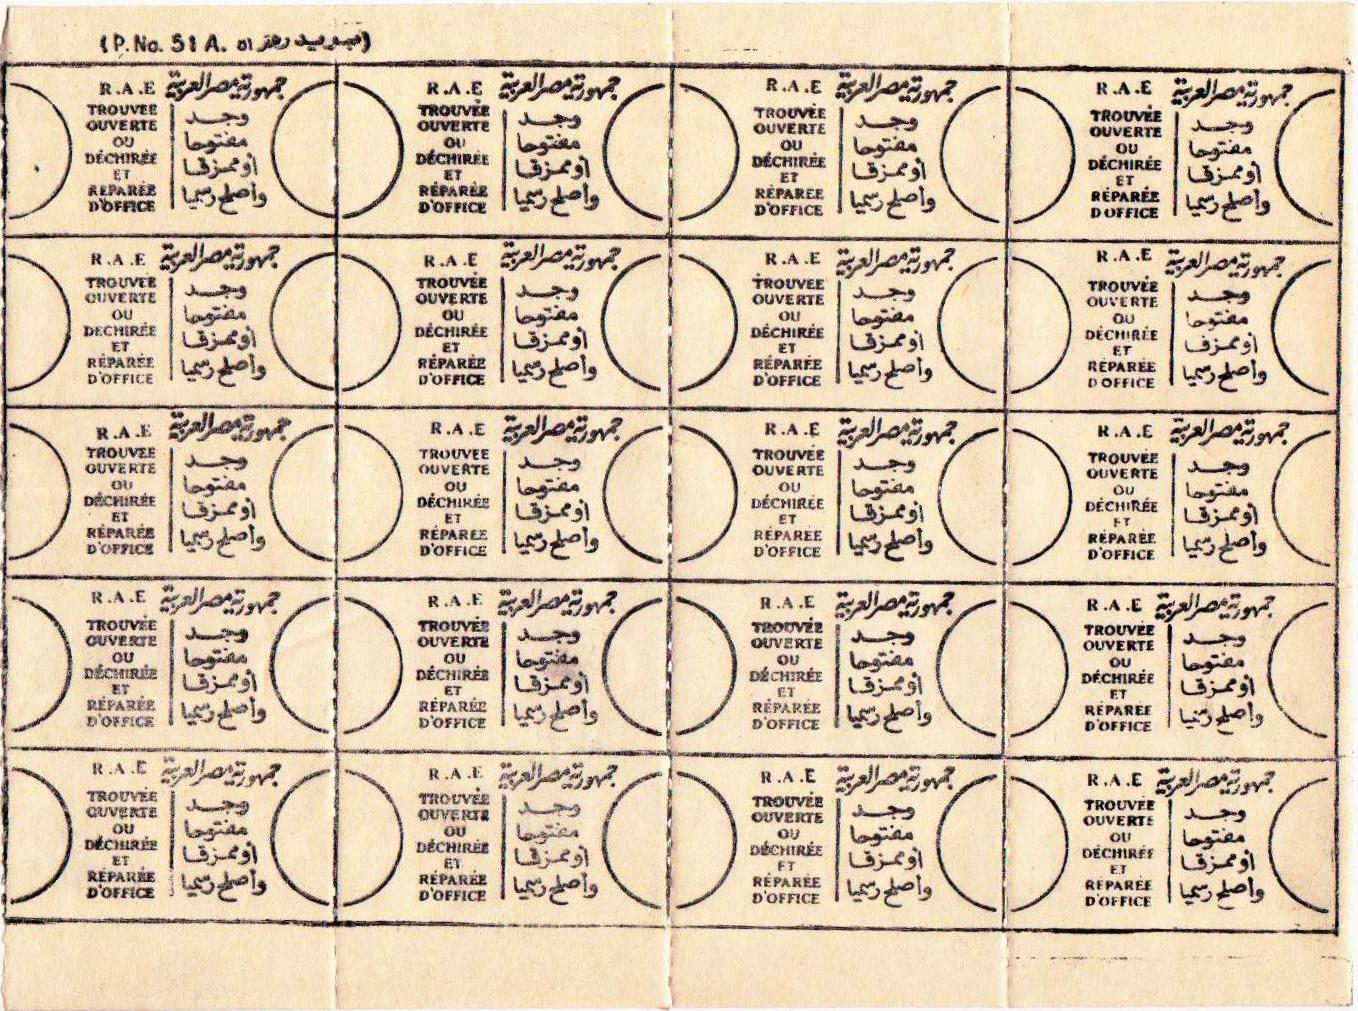 (P. No. 51 A. بريد رقم ٥١)
R.A.E جمهورية مصر العربية
TROUVÉE
OUVERTE
OU
DÉCHIRÉE
ET
RÉPARÉE
D'OFFICE
وجد
مفتوحا
أو ممزقا
وأصلح رسميا
R.A.E جمهورية مصر العربية
TROUVÉE
OUVERTE
OU
DÉCHIRÉE
ET
RÉPARÉE
D'OFFICE
وجد
مفتوحا
أو ممزقا
وأصلح رسميا
R.A.E جمهورية مصر العربية
TROUVÉE
OUVERTE
OU
DÉCHIRÉE
ET
RÉPARÉE
D'OFFICE
وجد
مفتوحا
أو ممزقا
وأصلح رسميا
R.A.E جمهورية مصر العربية
TROUVÉE
OUVERTE
OU
DÉCHIRÉE
ET
RÉPARÉE
D'OFFICE
وجد
مفتوحا
أو ممزقا
وأصلح رسميا
R.A.E جمهورية مصر العربية
TROUVÉE
OUVERTE
OU
DÉCHIRÉE
ET
RÉPARÉE
D'OFFICE
وجد
مفتوحا
أو ممزقا
وأصلح رسميا
R.A.E جمهورية مصر العربية
TROUVÉE
OUVERTE
OU
DÉCHIRÉE
ET
RÉPARÉE
D'OFFICE
وجد
مفتوحا
أو ممزقا
وأصلح رسميا
R.A.E جمهورية مصر العربية
TROUVÉE
OUVERTE
OU
DÉCHIRÉE
ET
RÉPARÉE
D'OFFICE
وجد
مفتوحا
أو ممزقا
وأصلح رسميا
R.A.E جمهورية مصر العربية
TROUVÉE
OUVERTE
OU
DÉCHIRÉE
ET
RÉPARÉE
D'OFFICE
وجد
مفتوحا
أو ممزقا
وأصلح رسميا
R.A.E جمهورية مصر العربية
TROUVÉE
OUVERTE
OU
DÉCHIRÉE
ET
RÉPARÉE
D'OFFICE
وجد
مفتوحا
أو ممزقا
وأصلح رسميا
R.A.E جمهورية مصر العربية
TROUVÉE
OUVERTE
OU
DÉCHIRÉE
ET
RÉPARÉE
D'OFFICE
وجد
مفتوحا
أو ممزقا
وأصلح رسميا
R.A.E جمهورية مصر العربية
TROUVÉE
OUVERTE
OU
DÉCHIRÉE
ET
RÉPARÉE
D'OFFICE
وجد
مفتوحا
أو ممزقا
وأصلح رسميا
R.A.E جمهورية مصر العربية
TROUVÉE
OUVERTE
OU
DÉCHIRÉE
ET
RÉPARÉE
D'OFFICE
وجد
مفتوحا
أو ممزقا
وأصلح رسميا
R.A.E جمهورية مصر العربية
TROUVÉE
OUVERTE
OU
DÉCHIRÉE
ET
RÉPARÉE
D'OFFICE
وجد
مفتوحا
أو ممزقا
وأصلح رسميا
R.A.E جمهورية مصر العربية
TROUVÉE
OUVERTE
OU
DÉCHIRÉE
ET
RÉPARÉE
D'OFFICE
وجد
مفتوحا
أو ممزقا
وأصلح رسميا
R.A.E جمهورية مصر العربية
TROUVÉE
OUVERTE
OU
DÉCHIRÉE
ET
RÉPARÉE
D'OFFICE
وجد
مفتوحا
أو ممزقا
وأصلح رسميا
R.A.E جمهورية مصر العربية
TROUVÉE
OUVERTE
OU
DÉCHIRÉE
ET
RÉPARÉE
D'OFFICE
وجد
مفتوحا
أو ممزقا
وأصلح رسميا
R.A.E جمهورية مصر العربية
TROUVÉE
OUVERTE
OU
DÉCHIRÉE
ET
RÉPARÉE
D'OFFICE
وجد
مفتوحا
أو ممزقا
وأصلح رسميا
R.A.E جمهورية مصر العربية
TROUVÉE
OUVERTE
OU
DÉCHIRÉE
ET
RÉPARÉE
D'OFFICE
وجد
مفتوحا
أو ممزقا
وأصلح رسميا
R.A.E جمهورية مصر العربية
TROUVÉE
OUVERTE
OU
DÉCHIRÉE
ET
RÉPARÉE
D'OFFICE
وجد
مفتوحا
أو ممزقا
وأصلح رسميا
R.A.E جمهورية مصر العربية
TROUVÉE
OUVERTE
OU
DÉCHIRÉE
ET
RÉPARÉE
D'OFFICE
وجد
مفتوحا
أو ممزقا
وأصلح رسميا